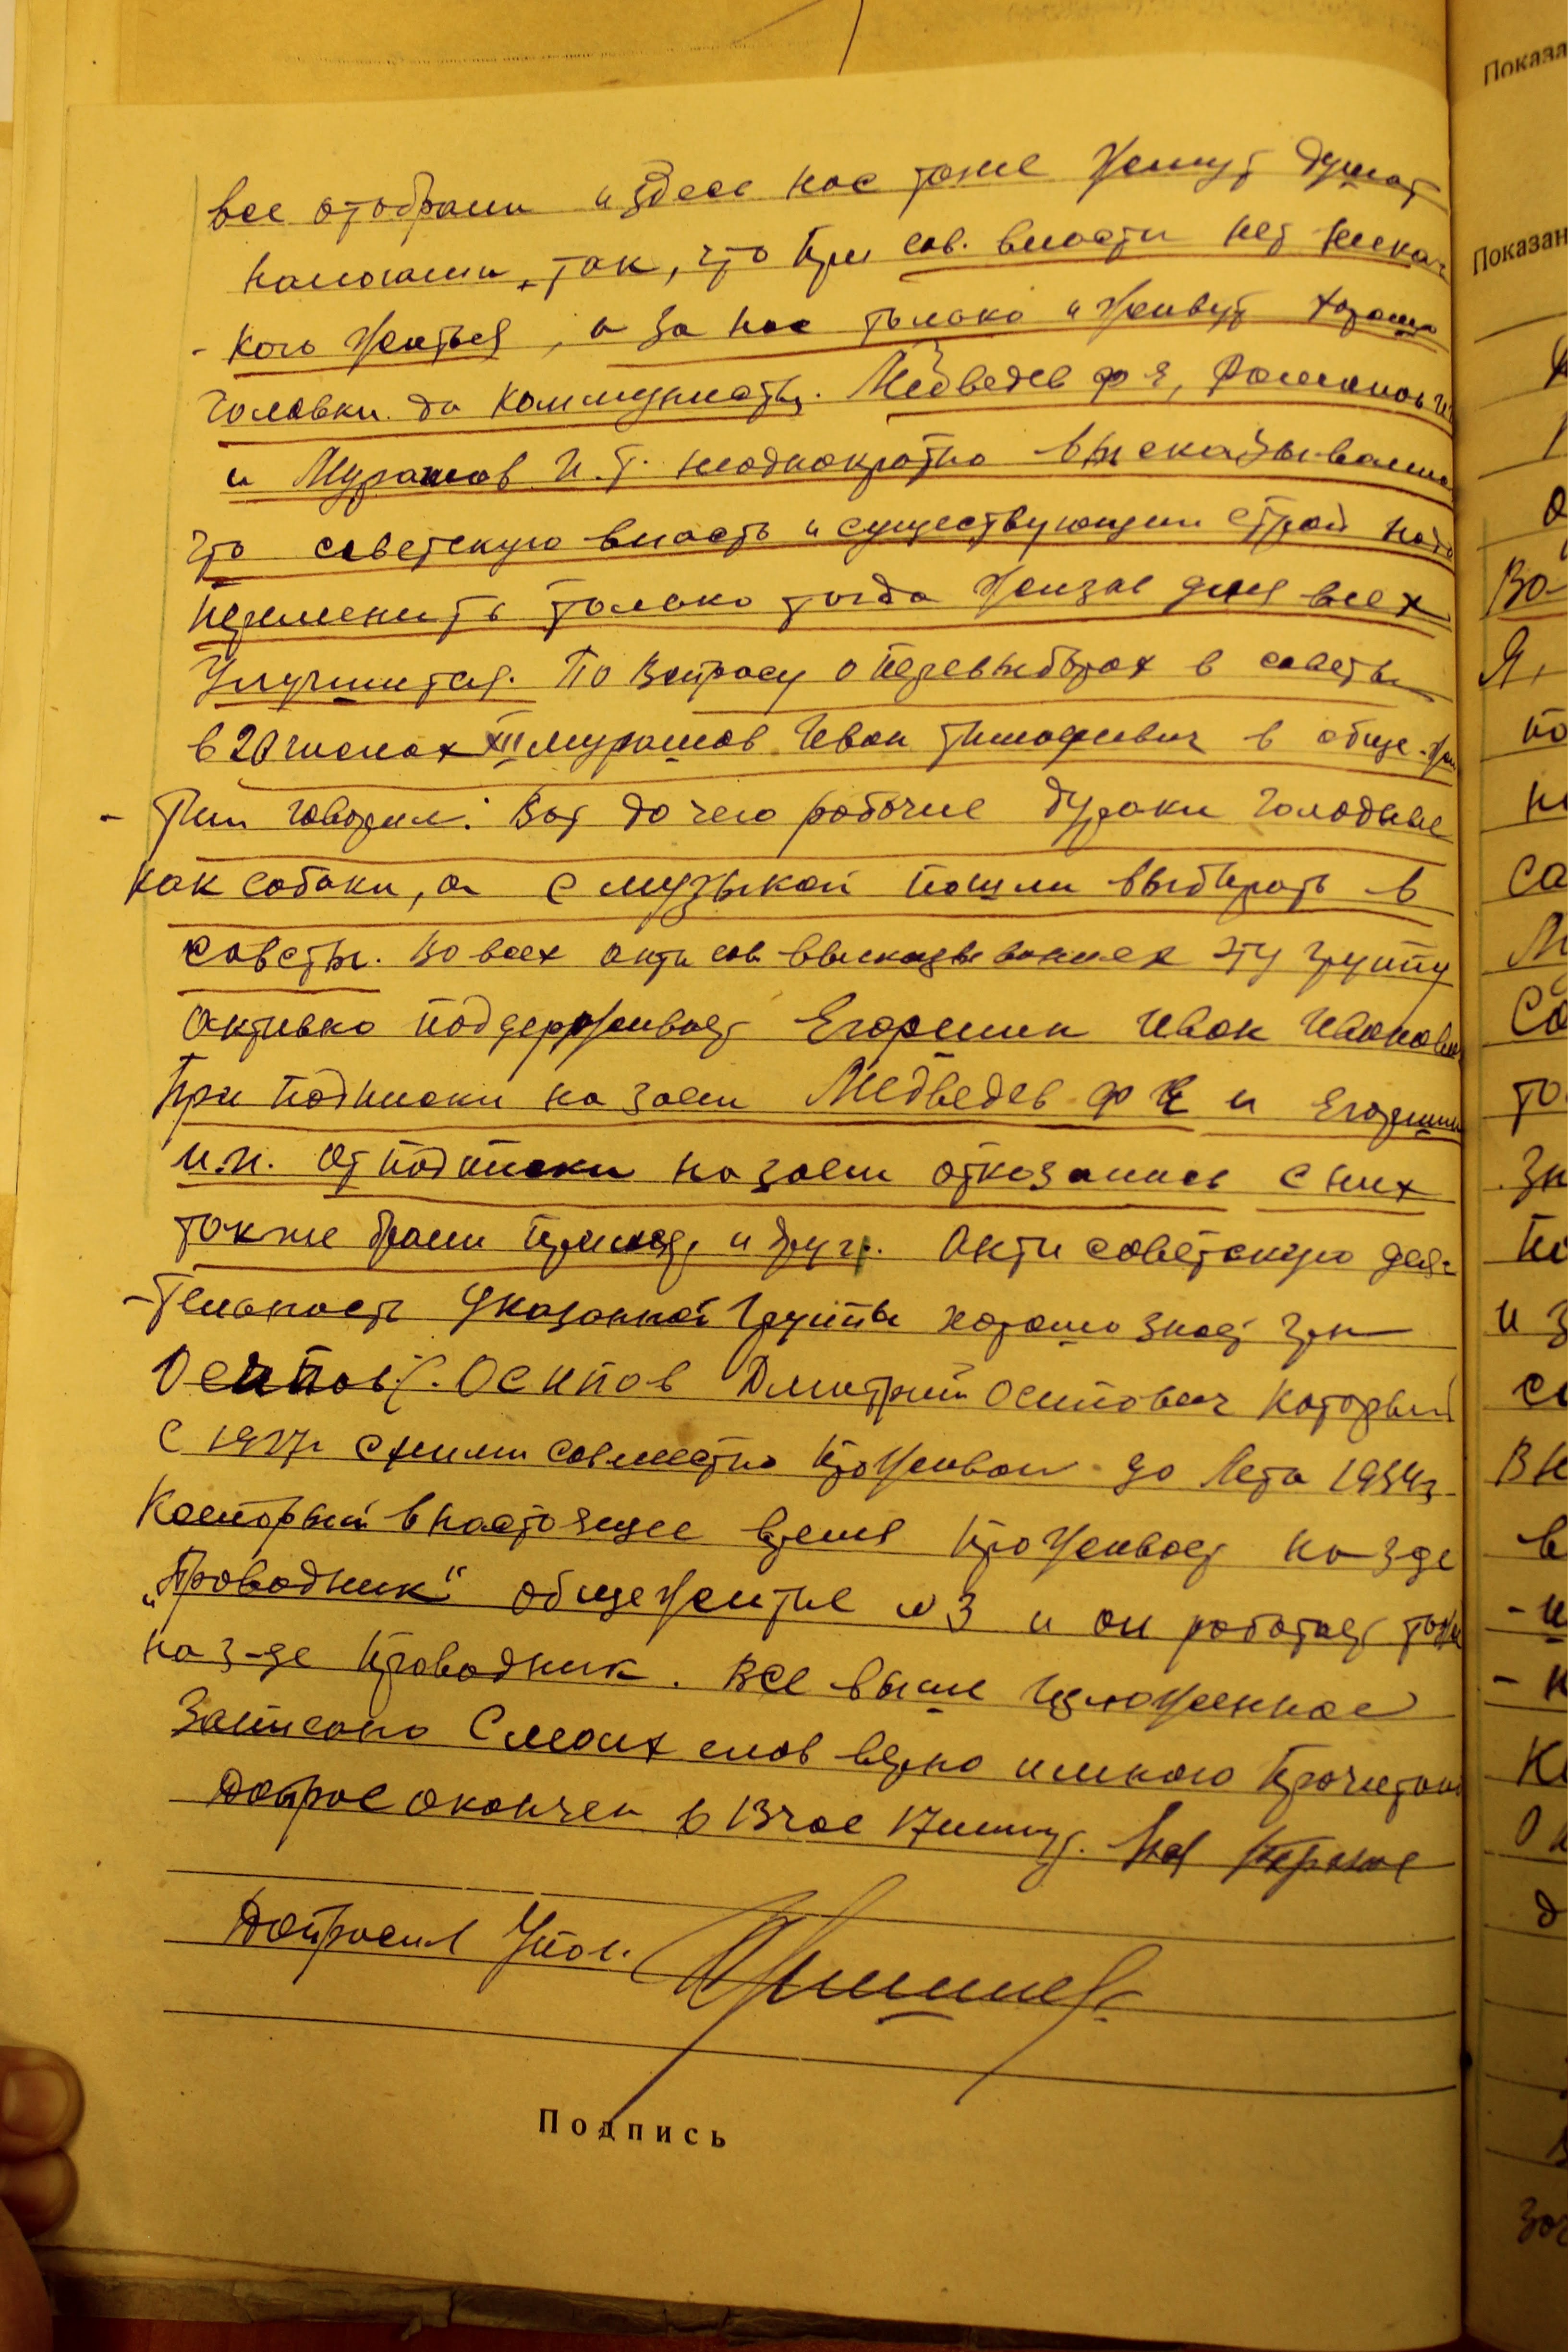 все отобрали и здесь нас тоже жмут душат
налогами, так, что при сов. власти нет ника-
- кого житья, а за нас только и живут хорошо
головки да коммунисты. Медведев Ф Я, Романов
и Мурашов И.Т. неоднократно высказывались
что советскую власть и существующий строй надо
переменить только тогда жизнь для всех
улучшится. По вопросу о перевыборах в советы
в 20 числах XII Мурашов Иван Тимофеевич в обще-жи
- тии говорил: Вот до чего рабочие дураки голодные
как собаки, а с музыкой пошли выбирать в
советы. Во всех анти сов высказываниях эту группу
активно поддерживает Егоршин Иван Иванович
При подписки на заем Медведев Ф Я и Егоршин
И.И. от подписки на заем отказались с них
также брали пример и друг. Анти советскую дея-
- тельность указанной группы хорошо знает гр-н
Осипов Дмитрий Осипович который
с 1927г с ними совместно проживал до лета 1934г
который в настоящее время проживает на з-де
„Проводник“ общежитие №3 и он работает тоже
на з-де Проводник. Все выше изложенное
записано с моих слов верно и мною прочитано
допрос окончен в 13 час 17 минут.
Допросил Упол.
Подпись
Показа
Показан